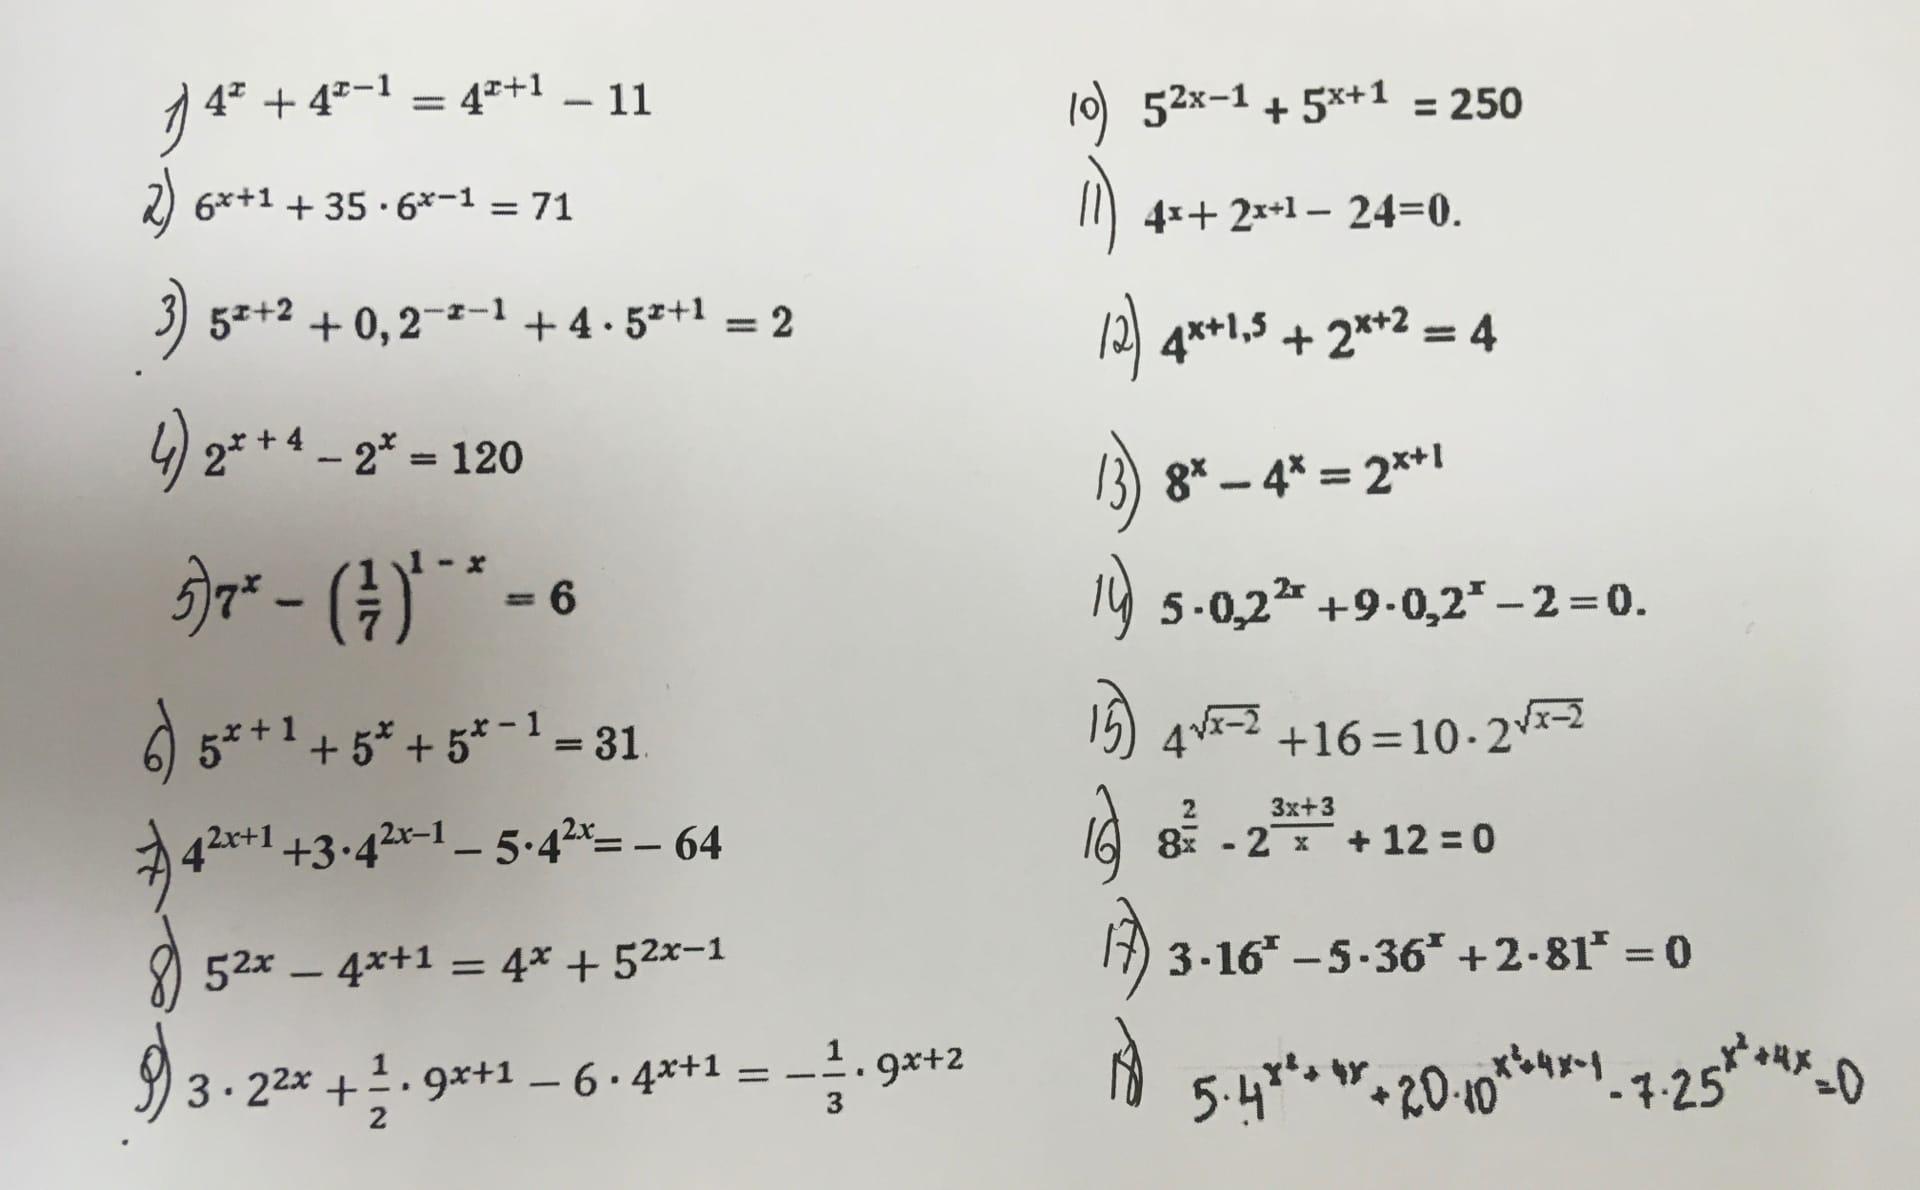 1) 4^x + 4^{x-1} = 4^{x+1} - 11
2) 6^{x+1} + 35 · 6^{x-1} = 71
3) 5^{x+2} + 0,2^{-x-1} + 4 · 5^{x+1} = 2
4) 2^{x+4} - 2^x = 120
5) 7^x - (1/7)^{1-x} = 6
6) 5^{x+1} + 5^x + 5^{x-1} = 31.
7) 4^{2x+1} + 3·4^{2x-1} - 5·4^{2x} = - 64
8) 5^{2x} - 4^{x+1} = 4^x + 5^{2x-1}
9) 3 · 2^{2x} + 1/2 · 9^{x+1} - 6 · 4^{x+1} = -1/3 · 9^{x+2}
10) 5^{2x-1} + 5^{x+1} = 250
11) 4^x + 2^{x+1} - 24=0.
12) 4^{x+1,5} + 2^{x+2} = 4
13) 8^x - 4^x = 2^{x+1}
14) 5·0,2^{2x} + 9·0,2^x - 2 = 0.
15) 4^{√(x-2)} + 16 = 10·2^{√(x-2)}
16) 8^{2/x} - 2^{(3x+3)/x} + 12 = 0
17) 3·16^x - 5·36^x + 2·81^x = 0
18) 5·4^{x²+4x} + 20·10^{x²+4x-1} - 7·25^{x²+4x} = 0